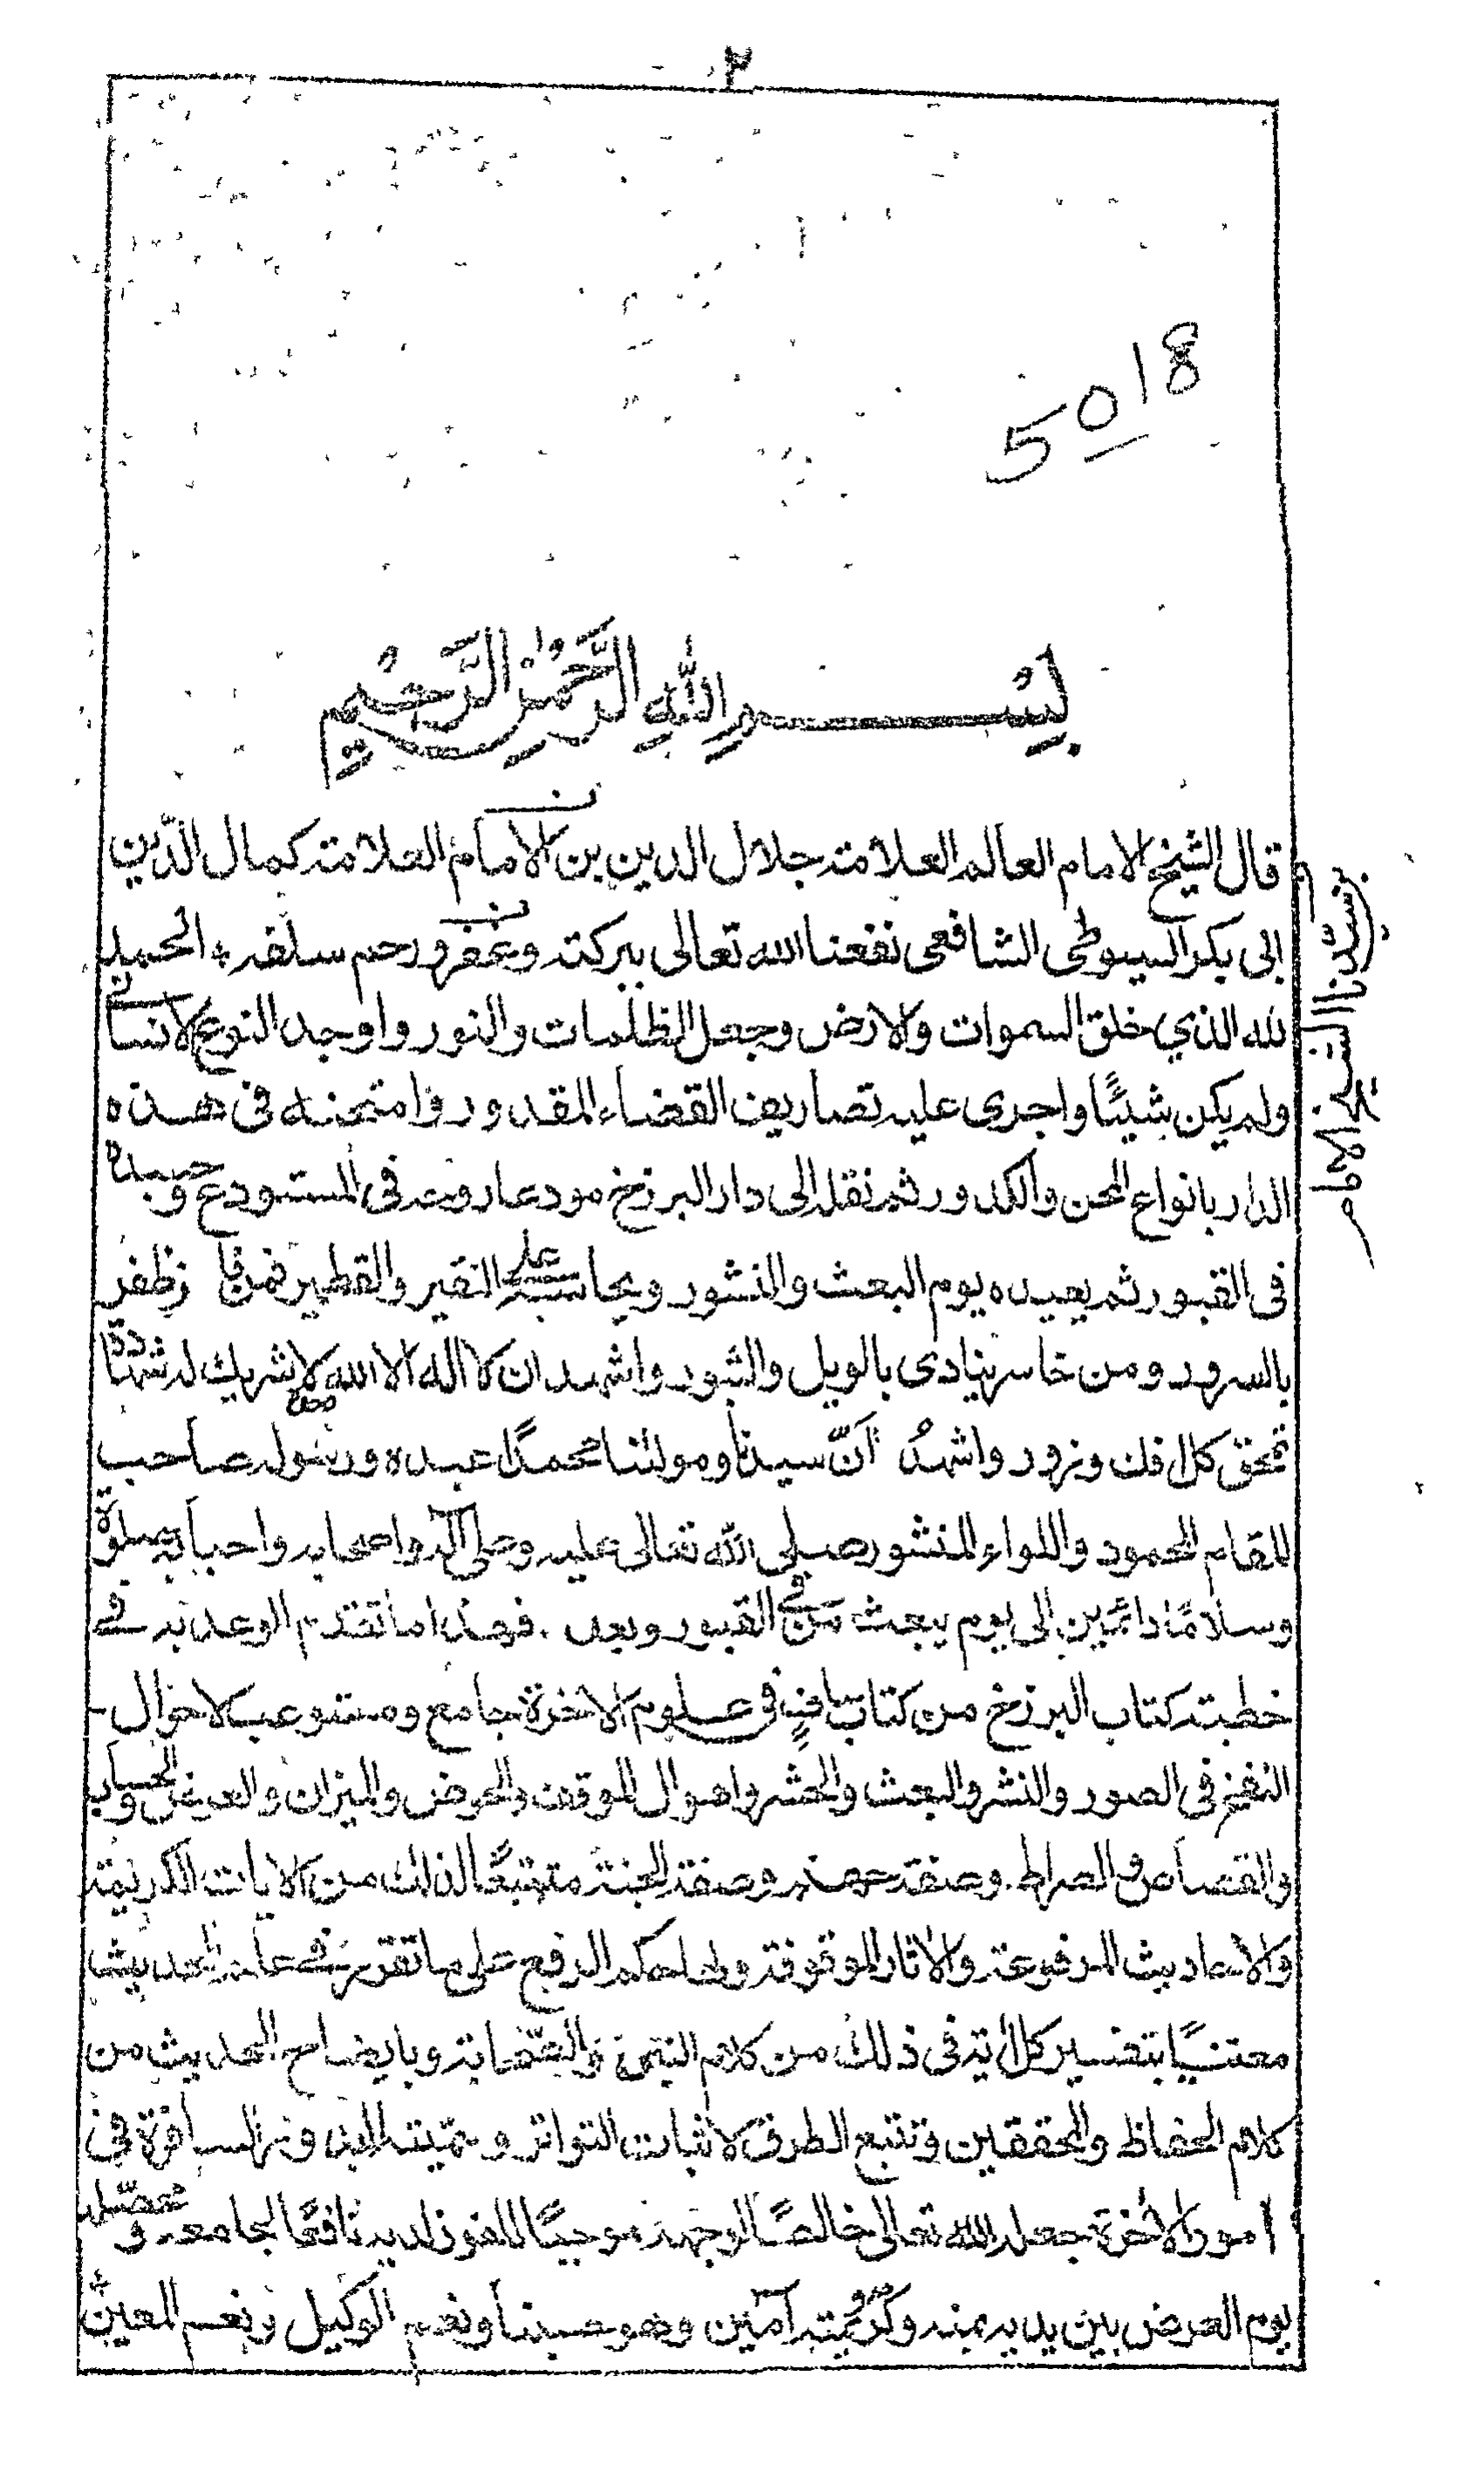 ٢
5018
بِسْمِ اللّٰهِ الرَّحْمٰنِ الرَّحِيْمِ
قال الشيخ الامام العالم العلامة جلال الدين بن الامام العلامة كمال الدين
ابى بكر السيوطى الشافعى نفعنا الله تعالى ببركته ورحم سلفه الحمد
لله الذي خلق السموات والارض وجعل الظلمات والنور واوجد النوع الانسانى
ولم يكن شيئًا واجرى عليه تصاريف القضاء المقدور وامتحنه فى هذه
الدار بانواع المحن والكدور ثم نقله الى دار البرزخ مودعا روحه فى المستودع وجسده
فى القبور ثم يعيده يوم البعث والنشور ويحاسبه على النقير والقطمير فمن فاز ظفر
بالسرور ومن خاسر ينادى بالويل والثبور واشهد ان لا اله الا الله وحده لا شريك له شهادة
تمحق كل افك وزور واشهدُ انّ سيدنا ومولٰنا محمدًا عبده ورسوله صاحب
المقام المحمود واللواء المنشور صلى الله تعالى عليه وعلى آله واصحابه واحبابه صلوة
وسلامًا دائمين الى يوم يبعث من فى القبور وبعد . فهذا ما تقدم الوعد به فى
خطبة كتاب البرزخ من كتاب شافٍ فى علوم الاخرة جامع ومستوعب لاحوال
النفخ فى الصور والنشر والبعث والحشر واهوال الموقف والعرض والميزان والحوض والحساب
والقصاص والصراط . وصفة جهنم وصفة الجنة متتبعًا لذلك من الايات الكريمة
والاحاديث المرفوعة والاثار الموقوفة ولها حكم الرفع على ما تقرر فى علم الحديث
معتنيًا بتفسير كل اية فى ذلك من كلام النبى والصّحابة وبايضاح الحديث من
كلام الحفاظ والمحققين وتتبع الطرق لاثبات التواتر وسميته البدور السافرة فى
امور الاخرة جعله الله تعالى خالصًا لوجهه موجبًا للفوز لديه نافعًا لجامعه و محصّله
يوم العرض بين يديه بمنه وكرمه آمين وهو حسبنا ونعم الوكيل ونعم المعين
الشيخ الامام